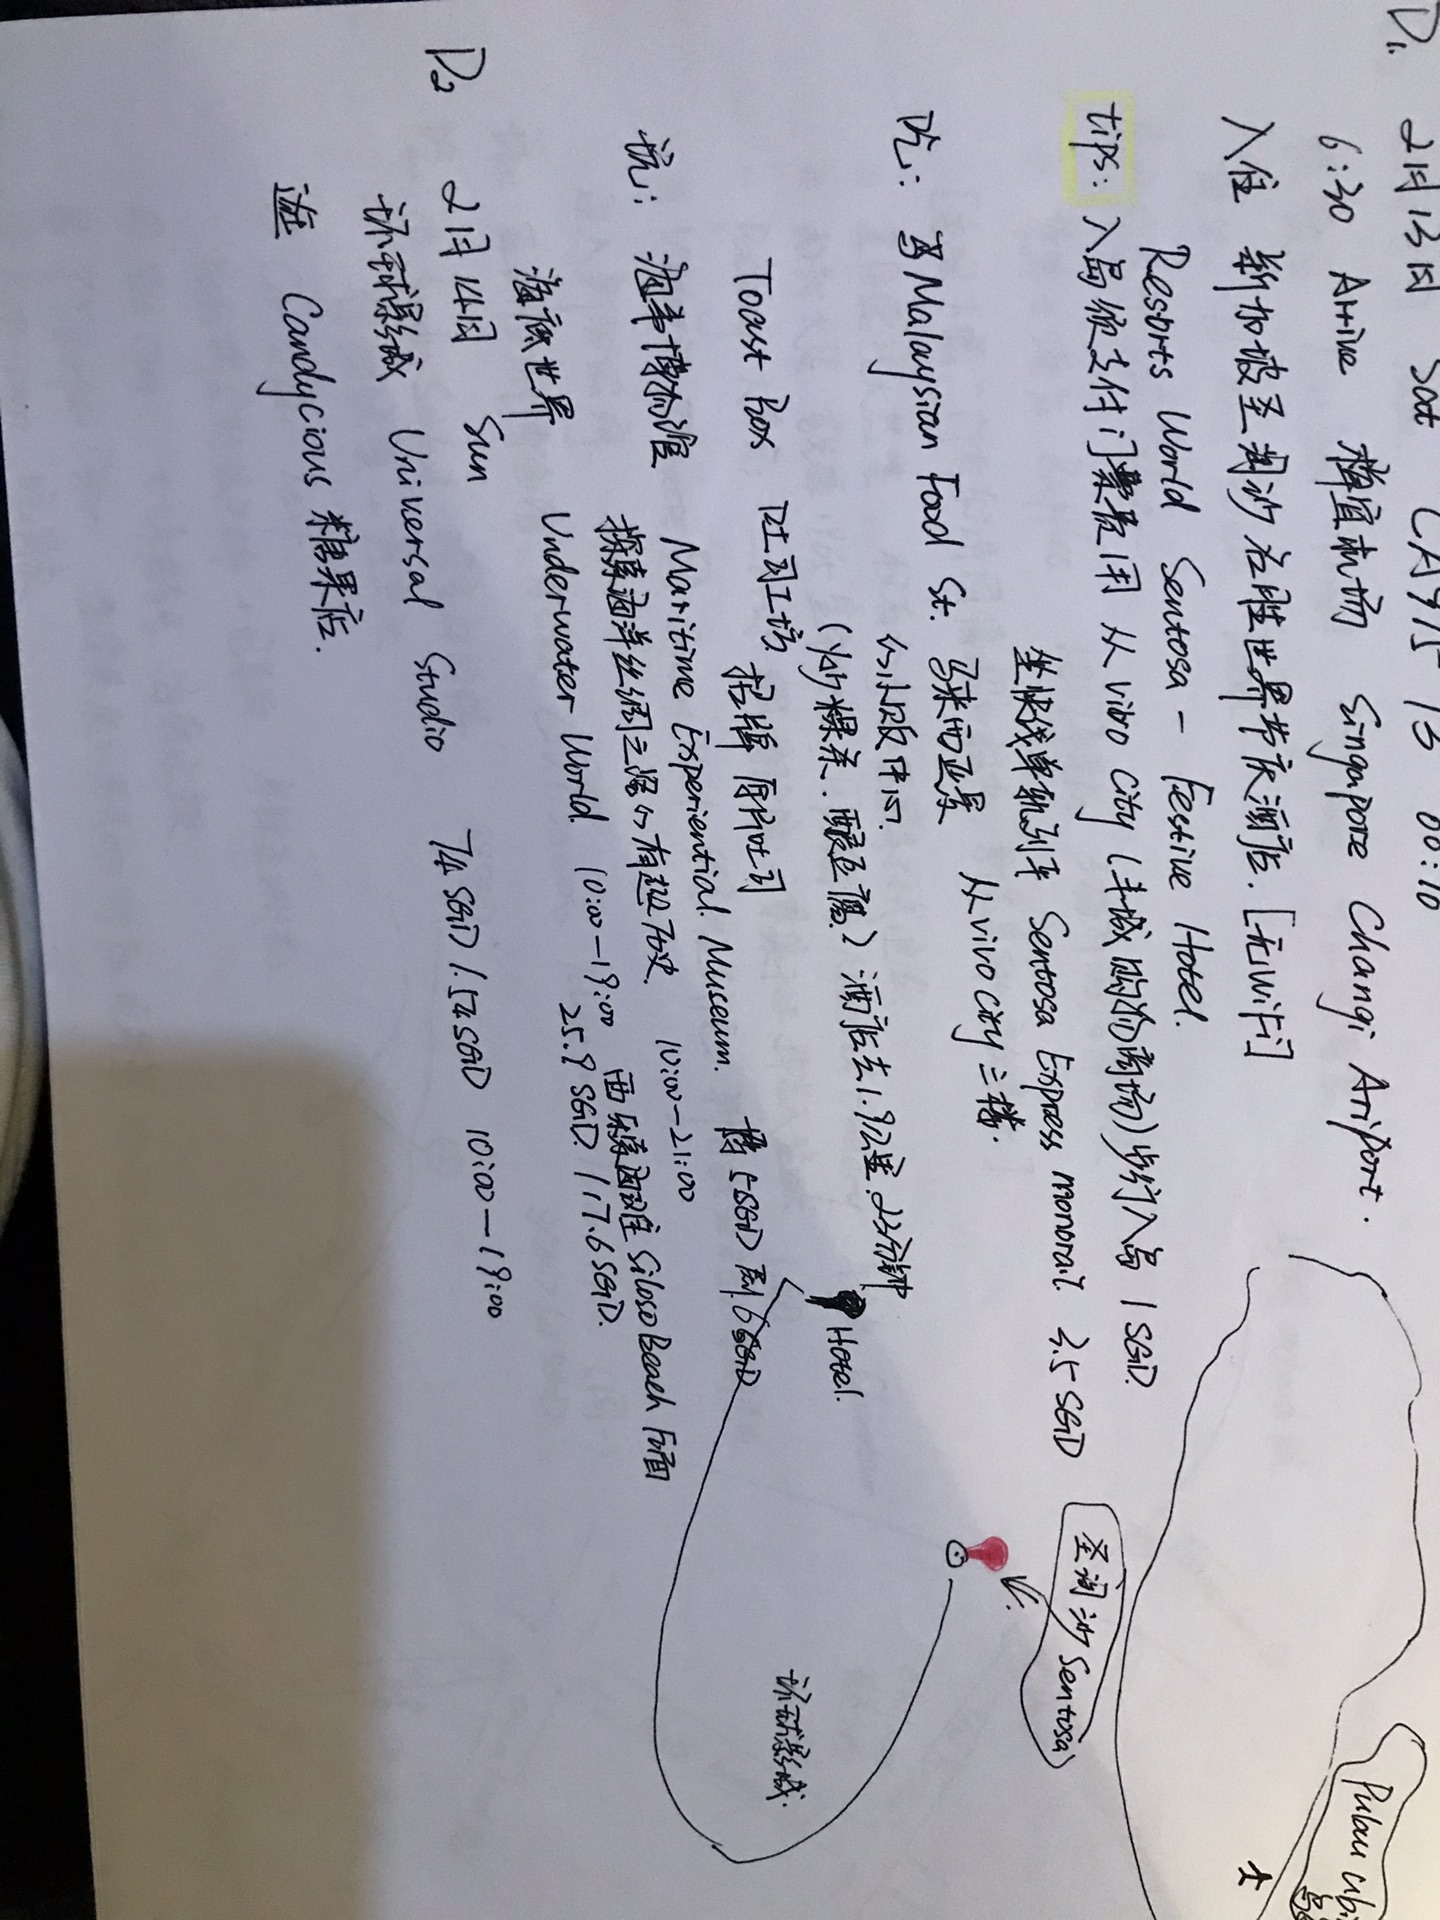 D1. 2月13日 Sat CA975 T3 00:10
6:30 Arrive 樟宜机场 Singapore Changi Ariport.
入住 新加坡圣淘沙名胜世界节庆酒店. [无wifi]
Resorts World Sentosa - Festive Hotel.
tips: 入岛须支付门票费用 从vivo city (丰城购物商场) 步行入岛 1 SGD.
坐快线单轨列车 Sentosa Express monorail 3.5 SGD
从vivo city 三楼.
吃: Malaysian Food St. 马来西亚
(炒粿条. 酿豆腐) 酒店去1.9公里. 23分钟
Toast Box 吐司工坊 招牌 厚片吐司
玩: 海事博物馆 Maritime Experiential Museum. 10:00-21:00 5SGD 6SGD
探索海洋丝绸之路的有趣历史.
海底世界 Underwater World. 10:00-19:00 西乐索海滩 Siloso Beach
25.9 SGD. / 17.6 SGD.
D2 2月14日 Sun
环球影城 Universal Studio 74 SGD / 54 SGD 10:00-19:00
逛 Candycious 糖果店.
Hotel.
圣淘沙 Sentosa
环球影城.
Pulau Ubi